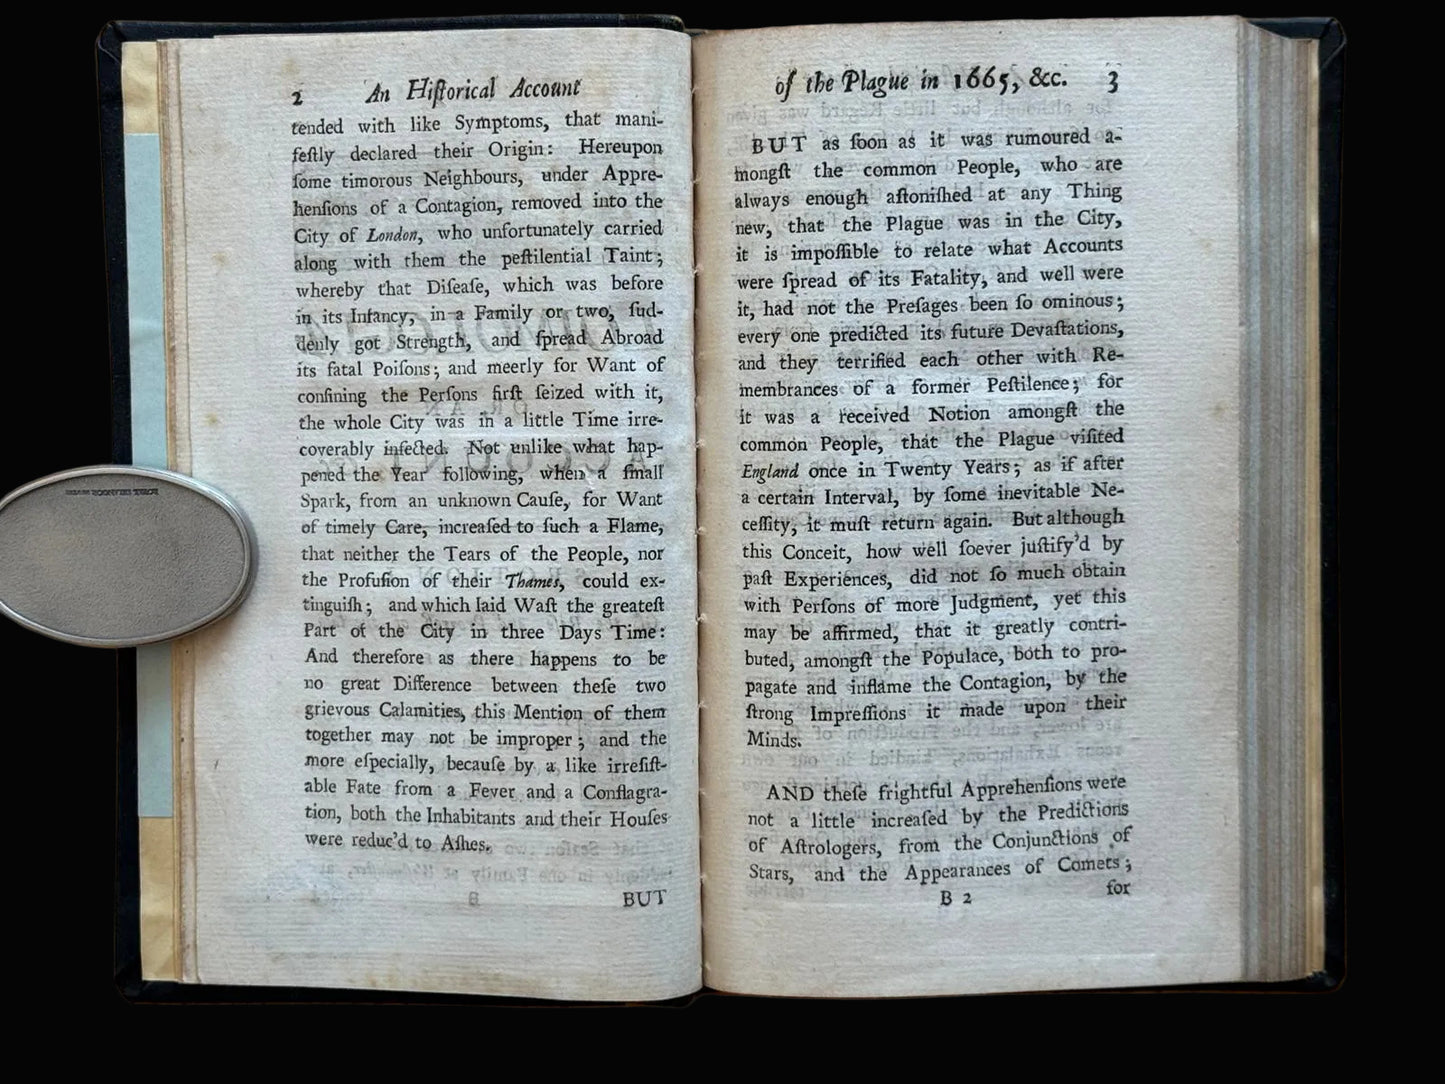 2 An Hiſtorical Account
tended with like Symptoms, that mani-
feſtly declared their Origin: Hereupon
ſome timorous Neighbours, under Appre-
henſions of a Contagion, removed into the
City of London, who unfortunately carried
along with them the peſtilential Taint;
whereby that Diſeaſe, which was before
in its Infancy, in a Family or two, ſud-
denly got Strength, and ſpread Abroad
its fatal Poiſons; and meerly for Want of
confining the Perſons firſt ſeized with it,
the whole City was in a little Time irre-
coverably infected. Not unlike what hap-
pened the Year following, when a ſmall
Spark, from an unknown Cauſe, for Want
of timely Care, increaſed to ſuch a Flame,
that neither the Tears of the People, nor
the Profuſion of their Thames, could ex-
tinguiſh; and which laid Waſt the greateſt
Part of the City in three Days Time:
And therefore as there happens to be
no great Difference between theſe two
grievous Calamities, this Mention of them
together may not be improper; and the
more eſpecially, becauſe by a like irreſiſt-
able Fate from a Fever and a Conflagra-
tion, both the Inhabitants and their Houſes
were reduc'd to Aſhes.
BUT
of the Plague in 1665, &c. 3
BUT as ſoon as it was rumoured a-
mongſt the common People, who are
always enough aſtoniſhed at any Thing
new, that the Plague was in the City,
it is impoſſible to relate what Accounts
were ſpread of its Fatality, and well were
it, had not the Preſages been ſo ominous;
every one predicted its future Devaſtations,
and they terrified each other with Re-
membrances of a former Peſtilence; for
it was a received Notion amongſt the
common People, that the Plague viſited
England once in Twenty Years; as if after
a certain Interval, by ſome inevitable Ne-
ceſſity, it muſt return again. But although
this Conceit, how well ſoever juſtify'd by
paſt Experiences, did not ſo much obtain
with Perſons of more Judgment, yet this
may be affirmed, that it greatly contri-
buted, amongſt the Populace, both to pro-
pagate and inflame the Contagion, by the
ſtrong Impreſſions it made upon their
Minds.
AND theſe frightful Apprehenſions were
not a little increaſed by the Predictions
of Aſtrologers, from the Conjunctions of
Stars, and the Appearances of Comets;
B 2 for